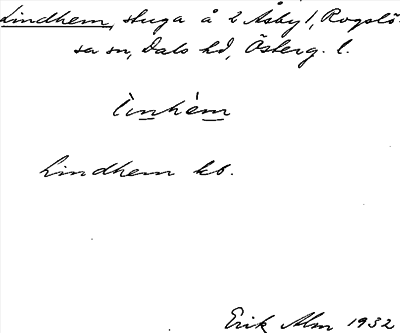 Lindhem, stuga å 2 Åsby 1, Rogslö-
sa sn, Dals hd, Österg. l.
lìnhèm
Lindhem kb.
Erik Alm 1932